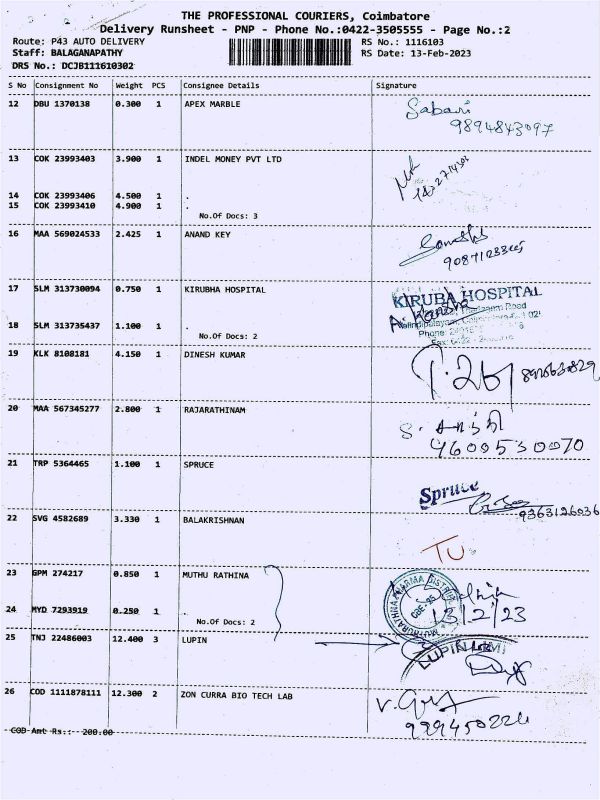 THE PROFESSIONAL COURIERS, Coimbatore
Delivery Runsheet - PNP - Phone No.:0422-3505555 - Page No.:2
Route: P43 AUTO DELIVERY RS No.: 1116103
Staff: BALAGANAPATHY RS Date: 13-Feb-2023
DRS No.: DCJB111610302
S No Consignment No Weight PCS Consignee Details Signature
12 DBU 1370138 0.300 1 APEX MARBLE
9894843097
13 COK 23993403 3.900 1 INDEL MONEY PVT LTD
14 COK 23993406 4.500 1 .
15 COK 23993410 4.900 1 .
No.Of Docs: 3
16 MAA 569024533 2.425 1 ANAND KEY
17 SLM 313730094 0.750 1 KIRUBHA HOSPITAL
KIRUBA HOSPITAL
18 SLM 313735437 1.100 1 .
No.Of Docs: 2
19 KLK 8108181 4.150 1 DINESH KUMAR
20 MAA 567345277 2.800 1 RAJARATHINAM
9600530070
21 TRP 5364465 1.100 1 SPRUCE
Spruce
9363126036
22 SVG 4582689 3.330 1 BALAKRISHNAN
TU
23 GPM 274217 0.850 1 MUTHU RATHINA
13/2/23
24 MYD 7293919 0.250 1 .
No.Of Docs: 2
25 TNJ 22486003 12.400 3 LUPIN
26 COD 1111878111 12.300 2 ZON CURRA BIO TECH LAB
COD Amt Rs.: 200.00